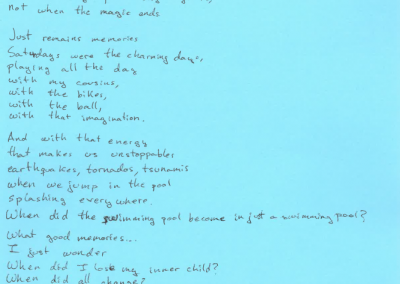 not when the magic ends
Just remains memories
Saturdays were the charming days,
playing all the day
with my cousins,
with the bikes,
with the ball,
with that imagination.
And with that energy
that makes us unstoppables
earthquakes, tornados, tsunamis
when we jump in the pool
splashing every where.
When did the swimming pool become in just a swimming pool?
What good memories...
I just wonder
When did I lose my inner child?
When did all change?